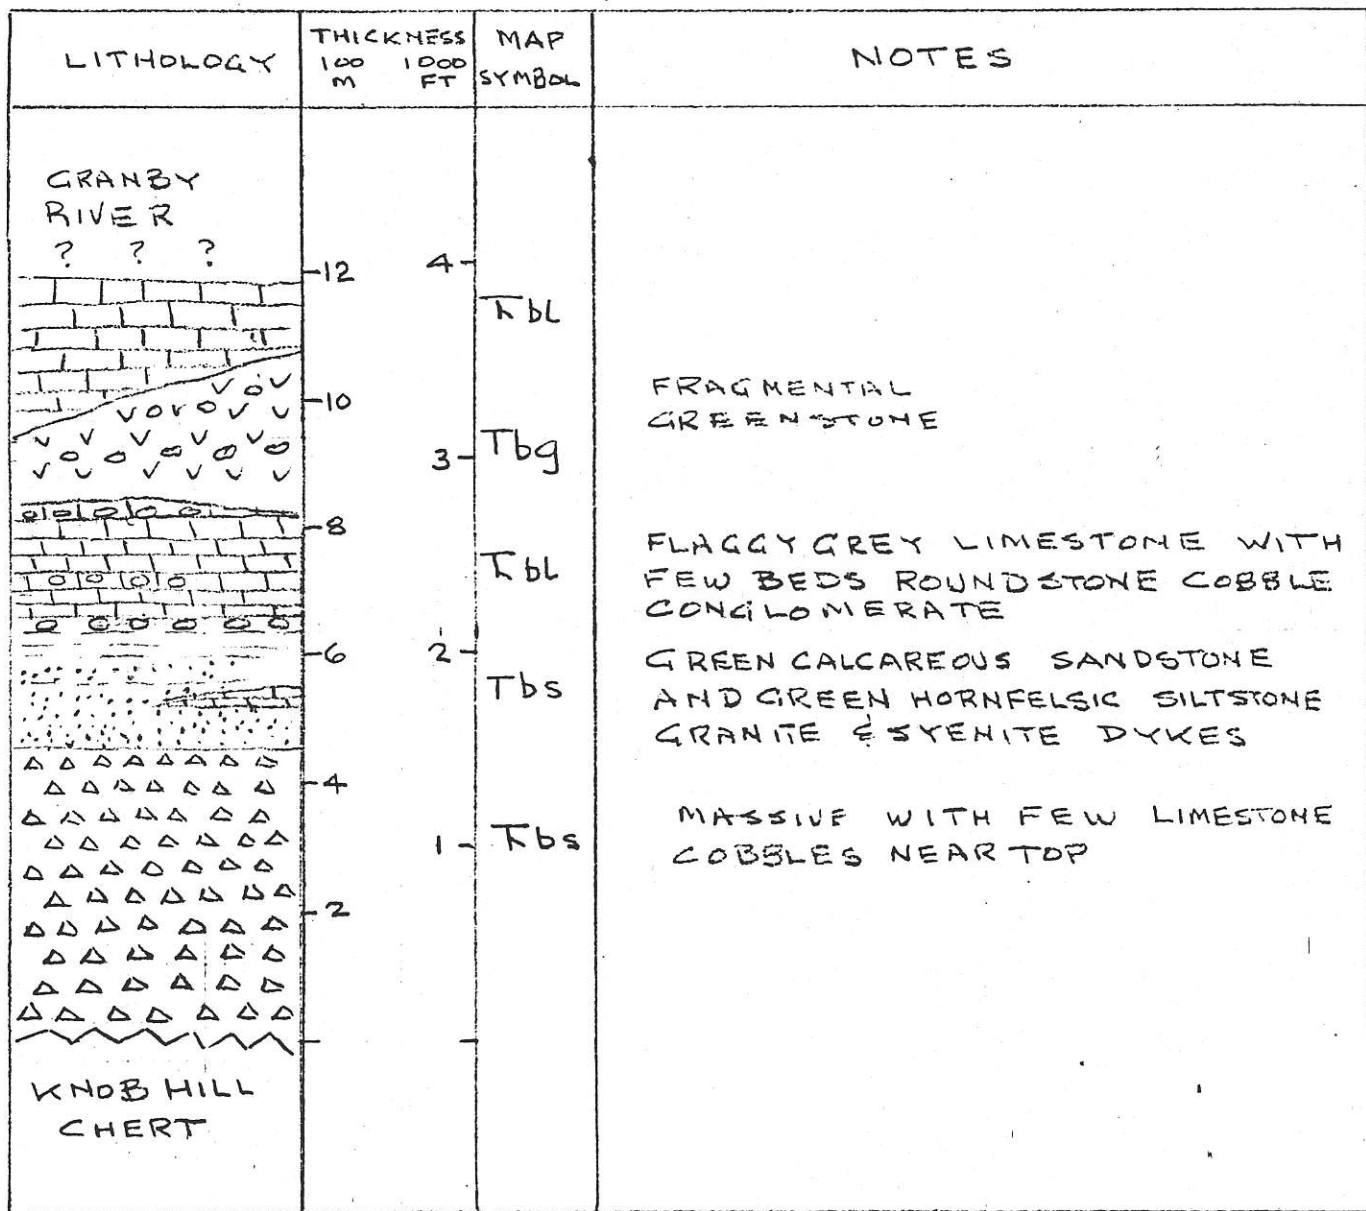 LITHOLOGY
THICKNESS
100 1000
M FT
MAP
SYMBOL
NOTES
GRANBY
RIVER
? ? ?
12 4
Ꞇbl
10
FRAGMENTAL
GREENSTONE
3 Tbg
8
Ꞇbl
FLAGGY GREY LIMESTONE WITH
FEW BEDS ROUNDSTONE COBBLE
CONGLOMERATE
6 2
Tbs
GREEN CALCAREOUS SANDSTONE
AND GREEN HORNFELSIC SILTSTONE
GRANITE & SYENITE DYKES
4
1 Ꞇbs
MASSIVE WITH FEW LIMESTONE
COBBLES NEAR TOP
2
KNOB HILL
CHERT